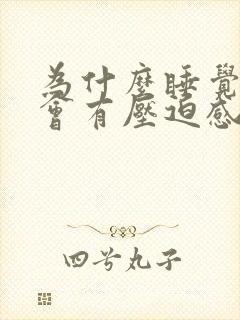 為什麼睡覺
會有壓迫感
四号丸子